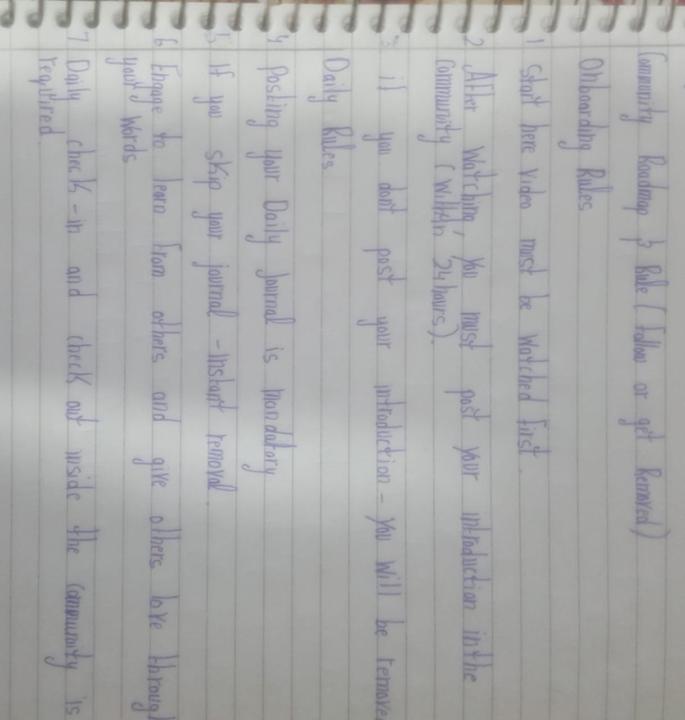 Community Roadmap & Rule (Follow or get Removed)
Onboarding Rules
1 Start here video must be watched first.
2 After Watching, you must post your introduction in the
Community (Within 24 hours).
3 if you dont post your introduction - you will be remove
Daily Rules
4 Posting your Daily Journal is mandatory
5 If you skip your journal - Instant removal.
6 Engage to learn from others and give others love through
your words
7 Daily check-in and check out inside the community is
required.